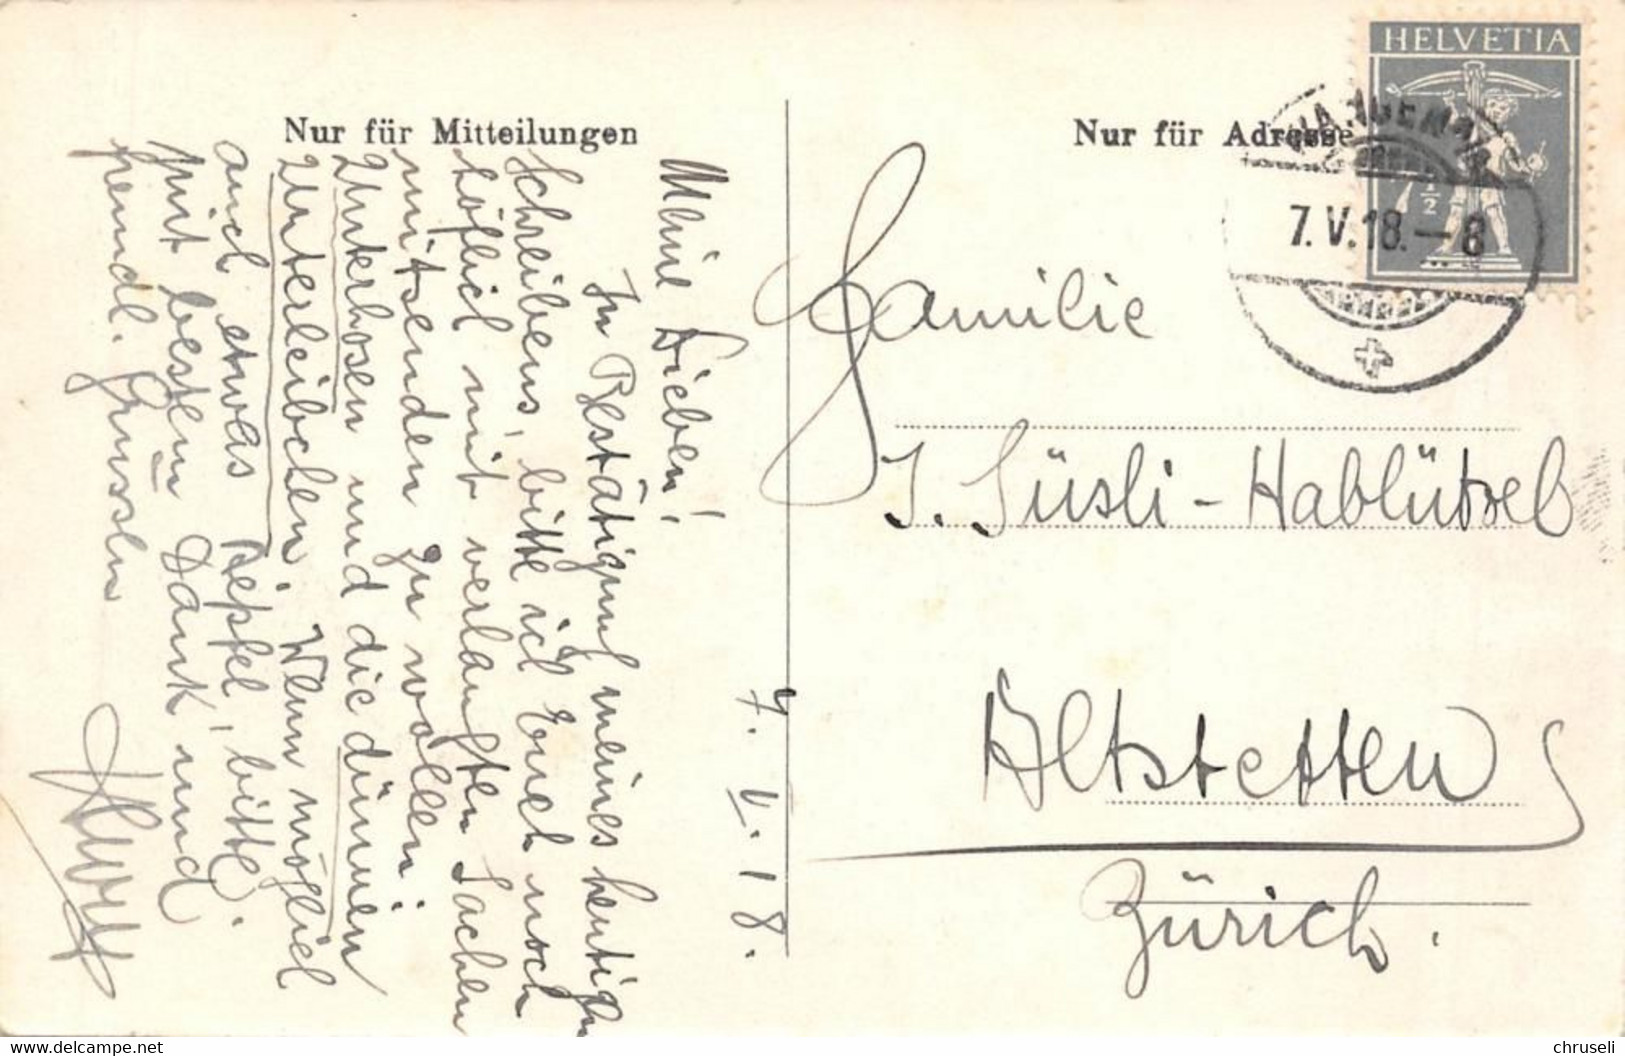 Nur für Mitteilungen
Meine Lieben!
In Bestätigung meines heutigen
Schreibens, bitte ich Euch noch
höflich mit verlangten Sachen
mitsenden zu wollen:
Unterhosen und die dünnen
Unterleibchen. Wenn möglich
auch etwas Aepfel, bitte.
Mit bestem Dank und
freundl. Grüssen
7. V. 18.
Nur für Adresse
HELVETIA
7 1/2
7.V.18.–8
Familie
J. Süsli-Hablützel
Altstetten
Zürich.
www.delcampe.net
chruseli